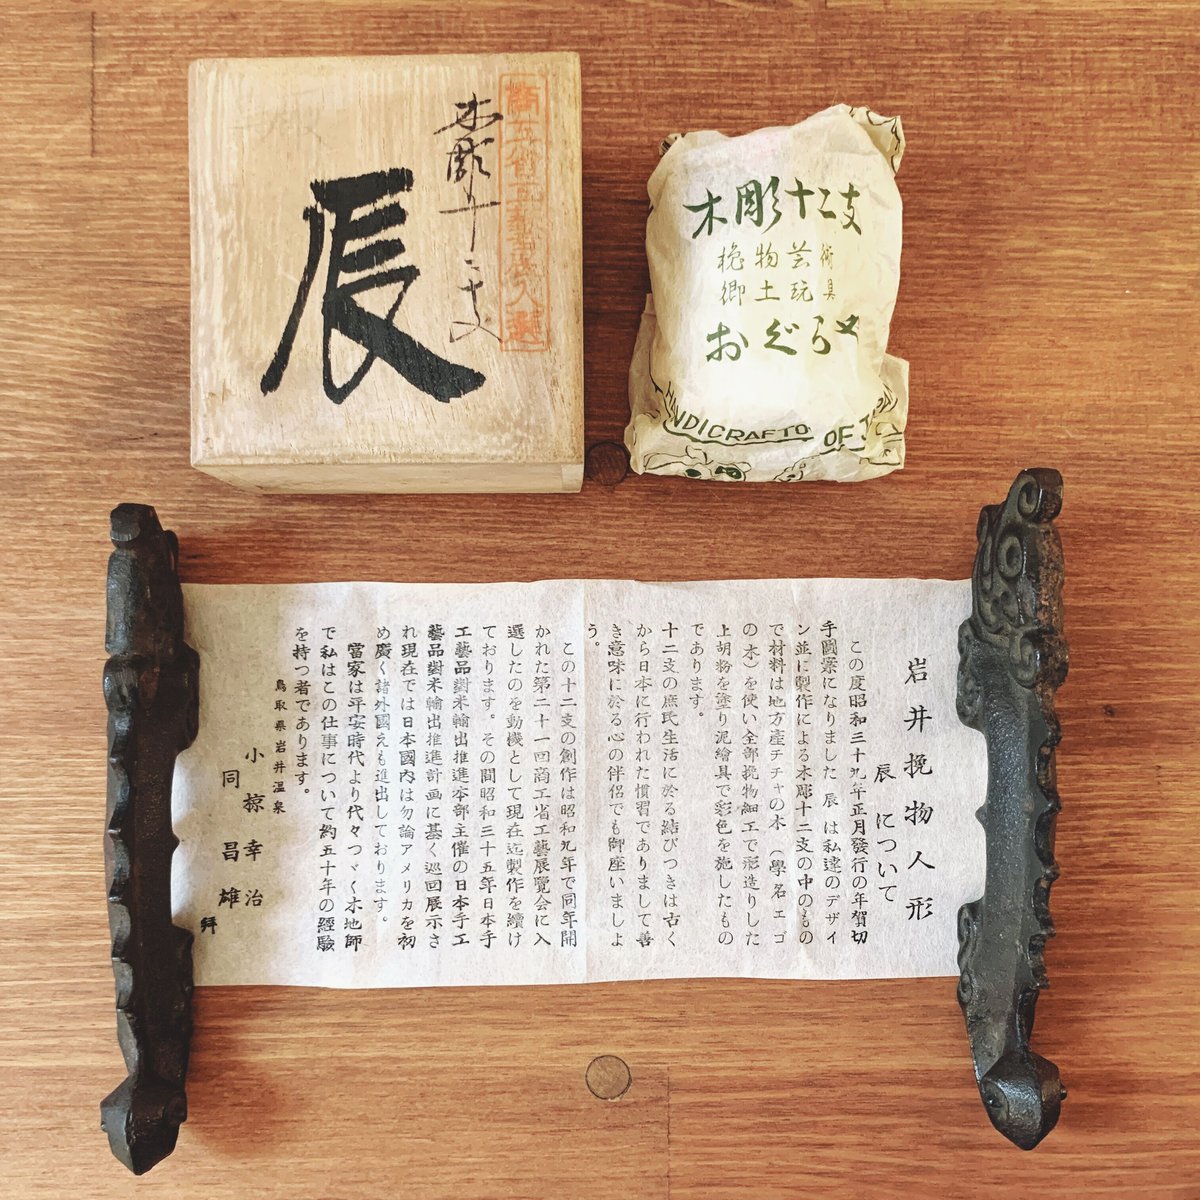 商工省工藝展入選
木彫十二支
辰
木彫十二支
挽物芸術
郷土玩具
おぐらや
HANDICRAFTO OF JAPAN
岩井挽物人形
辰について
この度昭和三十九年正月發行の年賀切
手圖案になりました 辰 は私達のデザイ
ン並に製作による木彫十二支の中のもの
で材料は地方産チチャの木 （學名エゴ
の木）を使い全部挽物細工で形造りした
上胡粉を塗り泥繪具で彩色を施したもの
であります。
十二支の庶民生活に於る結びつきは古く
から日本に行われた慣習でありまして善
き意味に於る心の伴侶でも御座いましよ
う。
この十二支の創作は昭和九年で同年開
かれた第二十一回商工省工藝展覽会に入
選したのを動機として現在迄製作を續け
ております。その間昭和三十五年日本手
工藝品對米輸出推進本部主催の日本手工
藝品對米輸出推進計画に基く巡回展示さ
れ現在では日本國内は勿論アメリカを初
め廣く諸外國えも進出しております。
當家は平安時代より代々つゞく木地師
で私はこの仕事について約五十年の經驗
を持つ者であります。
鳥取県岩井温泉
小椋幸治
同 昌雄
拜